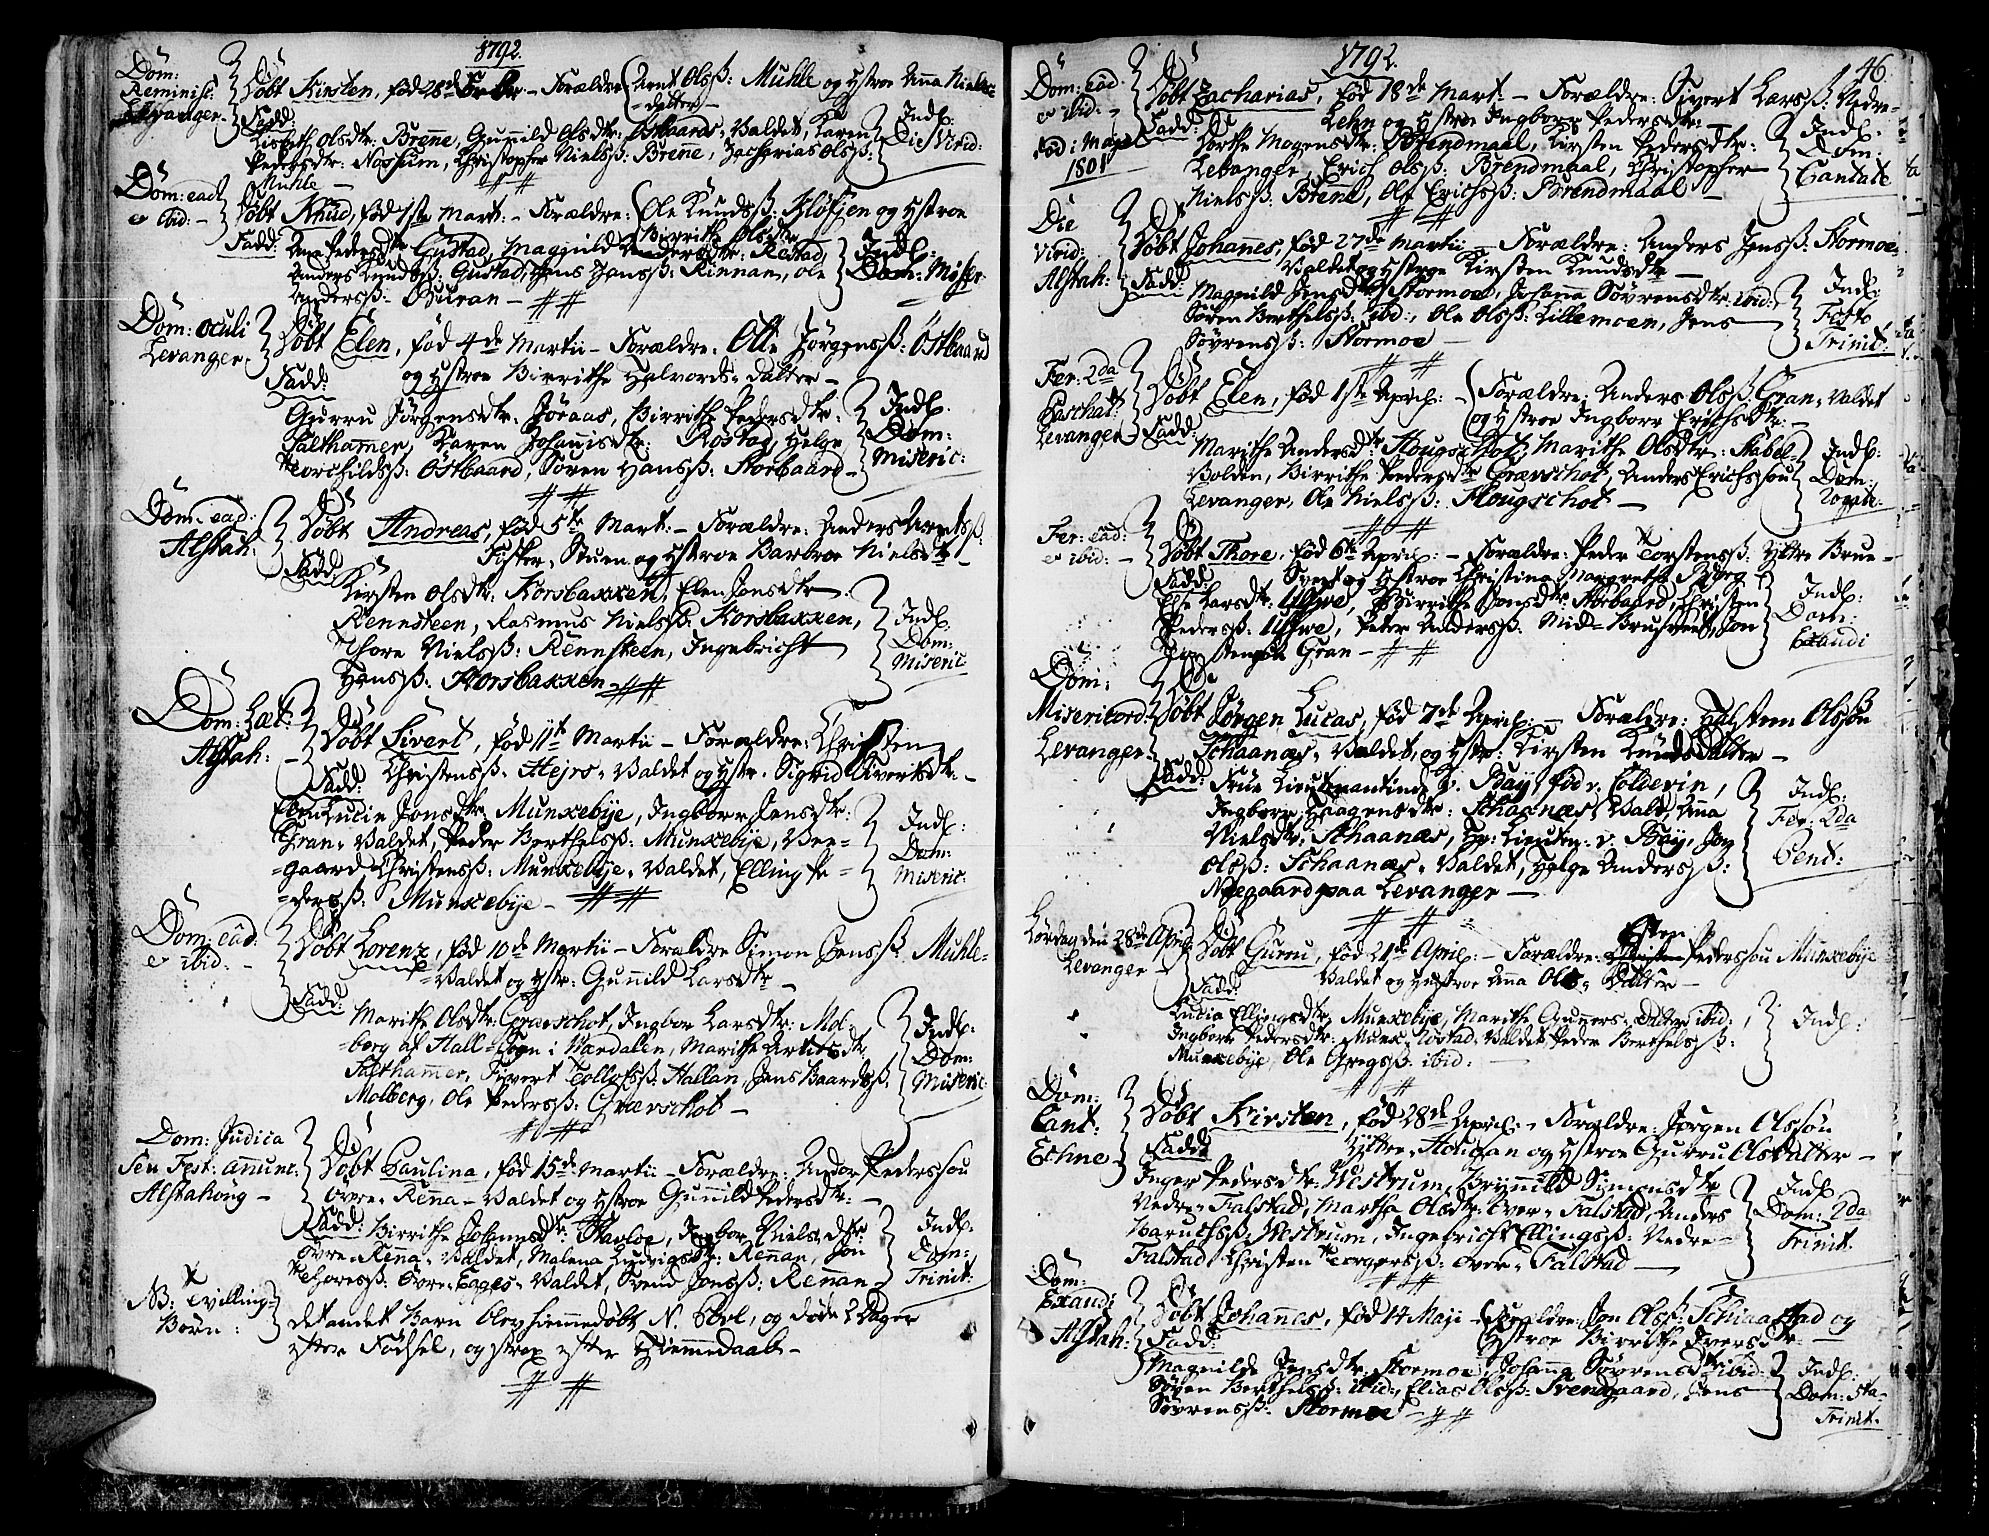 1792.
Dom:
Reminisc:
Levanger.
Døbt Kirsten, fød 28de Febr. – Forældre: Arnt Olsß: Muhle og Hstroe Anna Niels-
datter –
Fadd:
Lisbeth Olsdtr: Brenne, Gunild Olsdtr: Østbaards-Valdet, Karen
Pedersdtr: Nossum, Christopher Nielsß: Brenne, Zacharias Olsß:
Muhle –
Indl.
Die Virid:
Dom: ead:
et ibid: –
Døbt Knud, fød 1ste Mart. – Forældre: Ole Knudsß: Kløfsen og Hstroe
Birrithe Olsdtr
Fadd: Ana Pedersdtr Gustad, Magnild Andersdtr: Restad,
Anders Knudsß: Gustad, Hans Jensß: Rinnan, Ole
Andersß: Buran –
Indl:
Dom: Miser.
Dom: Oculi
Levanger.
Døbt Elen, fød 4de Martii – Forældre: Olle Jørgensß: Østbaard
og Hstroe Birrithe Halvords-datter –
Fadd:
Gurru Jørgensdtr: Jøraas, Birrithe Pedersdtr:
Salthamer, Karen Johannisdtr: Rostad, Helge
Torchildsß: Østbaard, Søren Hansß: Storbaard –
Indl:
Dom:
Miseric:
Dom: ead:
Alstah:
Døbt Andreas, fød 5te Mart: – Forældre: Anders Arntsß:
Fister-Stuen og Hstroe Barbroe Nielsdtr –
Fadd:
Kirsten Olsdtr: Korsbakken, Elen Jonsdtr
Rennsteen, Rasmus Nielsß: Korsbakken,
Thore Nielsß: Rennsteen, Ingebricht
Hansß: Korsbakken –
Indl:
Dom:
Miseric:
Dom: Læt:
Alstah:
Døbt Sivert, fød 11te Martii – Forældre: Christen
Christensß: Hejrs-Valdet og Hstr. Sigrid Sivertsdtr: –
Fadd:
Lucie Jonsdtr Munkebye, Ingborr Jensdtr:
Gran-Valdet, Peder Berthelsß: Munkebye, Ver-
gaard Christensß: Munkebye-Valdet, Elling Pe-
dersß: Munkebye –
Indl:
Dom:
Miseric:
Dom: ead:
et ibid: –
Døbt Lorenz, fød 10de Martii – Forældre Simon Jensß: Muhle-
Valdet og Hstr: Gunnild Larsdtr –
Fadd:
Marithe Olsdtr: Græschot, Ingbor Larsdtr: Mol-
berg af Hall-Sogn i Værdalen, Marithe Arntsdtr:
Salthamer, Sivert Tollofsß: Hallan, Jens Baardsß:
Molberg, Ole Pedersß: Grævschot –
Indl:
Dom:
Miseric:
Dom: Judica
seu Fest: anunt:
Alstahoug –
Døbt Paulina, fød 15de Martii – Forældre: Andor Pederssøn
Øvre-Rena-Valdet og Hstroe Gunnild Pedersdtr: –
Fadd: Birrithe Johannsdtr: Stavloe, Ingbor Nielsdtr:
Øvre-Renna-Valdet, Malena Ludvigsdtr: Rennan, Jon
Thoresß: Øvre-Eages-Valdet, Svend Jonsß: Rennan –
Indl.
Dom:
Trinit:
NB: Tvilling-
Børn:
det andet Barn blev hiemmedøbt N. Povl, og døde 2 Dager
efter Fødsel, og strax efter Hiemmedaab –
1792.
46.
Dom: ead:
et ibid: –
Død: Maji
1801
Døbt Zacharias, fød 18de Mart. – Forældre: Sivert Larsß: Nedre-
Lehn og Hstroe Ingborr Pedersdtr: –
Fadd: Dorthe Mogensdtr: Brendmaal, Kirsten Pedersdtr:
Levanger, Erich Olsß: Brendmaal, Christopher
Nielsß: Brenne, Ole Erichsß: Brendmaal –
Indl:
Dom:
Cantate
Die
Virid:
Alstah:
Døbt Johannes, fød 27de Martii – Forældre: Anders Jensß: Stormoe-
Valdet og Hstroe Kirsten Knudsdtr –
Fadd:
Magnild Jensdtr Stormoe, Johanna Sørensdtr: ibid:,
Søren Berthelsß: ibid:, Ole Olsß: Lillemoen, Jens
Sørensß: Stormoe –
Indl:
Festo
Trinit:
Fer: 2da
Paschat:
Levanger
Døbt Elen, fød 1ste April: – Forældre: Anders Olsß: Gran-Valdet
og Hstroe Ingborr Erichsdtr: –
Fadd:
Marithe Andersdtr: Hougschot, Marithe Olsdtr: Stabel-
Volden, Birrithe Pedersdtr Grævschot, Anders Erichssøn
Levanger, Ole Nielsß: Hougschot –
Indl:
Dom:
Rogate:
Fer: ead:
et ibid: –
Døbt Thore, fød 6te April: – Forældre: Peder Torstensß: Yttre Brue-
Svedt og Hstroe Christina Margrethe Bjørg –
Fadd:
Else Larsdtr: Ulfwe, Birrithe Jonsdtr: Storbaard, Christen
Pedersß: Ulfwe, Peter Andersß: Mid-Brusvedt, Jon
Gran –
Indl:
Dom:
Exaudi
Dom:
Misericord:
Levanger
Døbt Jørgen Lucas, fød 7de April: – Forældre: Halsten Olsøn
Schaanæs-Valdet, og Hstr: Kirsten Knuds Datter –
Fadd: Frue Lieutenantinde v. Bay, fød v. Coldevin,
Ingborr Haagensdtr: Schaanæs-Vald, Ana
Nielsdtr: Schaanæs, Hr: Lieuten: v. Bay, Jon
Olsß: Schaanæs-Valdet, Helge Andersß:
Nøegaard paa Levanger –
Indl:
Fer: 2da
Pent:
Lørdag den 28de April
Levanger –
Døbt Gurru, fød 21de April: – Forældre: Esten Pederssøn Munkebye
Valdet og Hustroe Ana Ols-Datter –
Fadd:
Lucia Ellingsdtr. Munkebye, Marithe Guners-Datter ibid:,
Ingborr Pedersdtr: Munk-Rostad-Valdet Peder Berthelsß:
Munkebye, Ole Gregsß: ibid: –
Indl:
Dom:
Cant:
Echne
Døbt Kirsten, fød 28de April: – Forældre: Jørgen Olssøn
Yttre-Hougan og Hstroe Gurru Olsdatter –
Fadd:
Inger Pedersdtr: Westrum, Brynnild Simonsdtr
Nedre-Falstad, Martha Olsdtr: Over-Falstad, Anders
Haruchsß: Westrum, Ingebricht Ellingsß: Nedre-
Falstad, Christen Torgersß: over-Falstad –
Indl:
Dom: 2da
Trinit.
Dom:
Exaudi
Alstah:
Døbt Johannes, fød 14 Maji – Forældre: Jon Olsß: Schiaastad og
Hstroe Birrithe Iversdtr –
Fadd:
Magnilde Jensdtr: Stormoe, Johanna Sørensdtr ibid:
Søren Berthelsß: ibid:, Elias Olsß: Svendgaard, Jens
Sørensß: Stormoe –
Indl:
Dom: 5ta
Trinit: